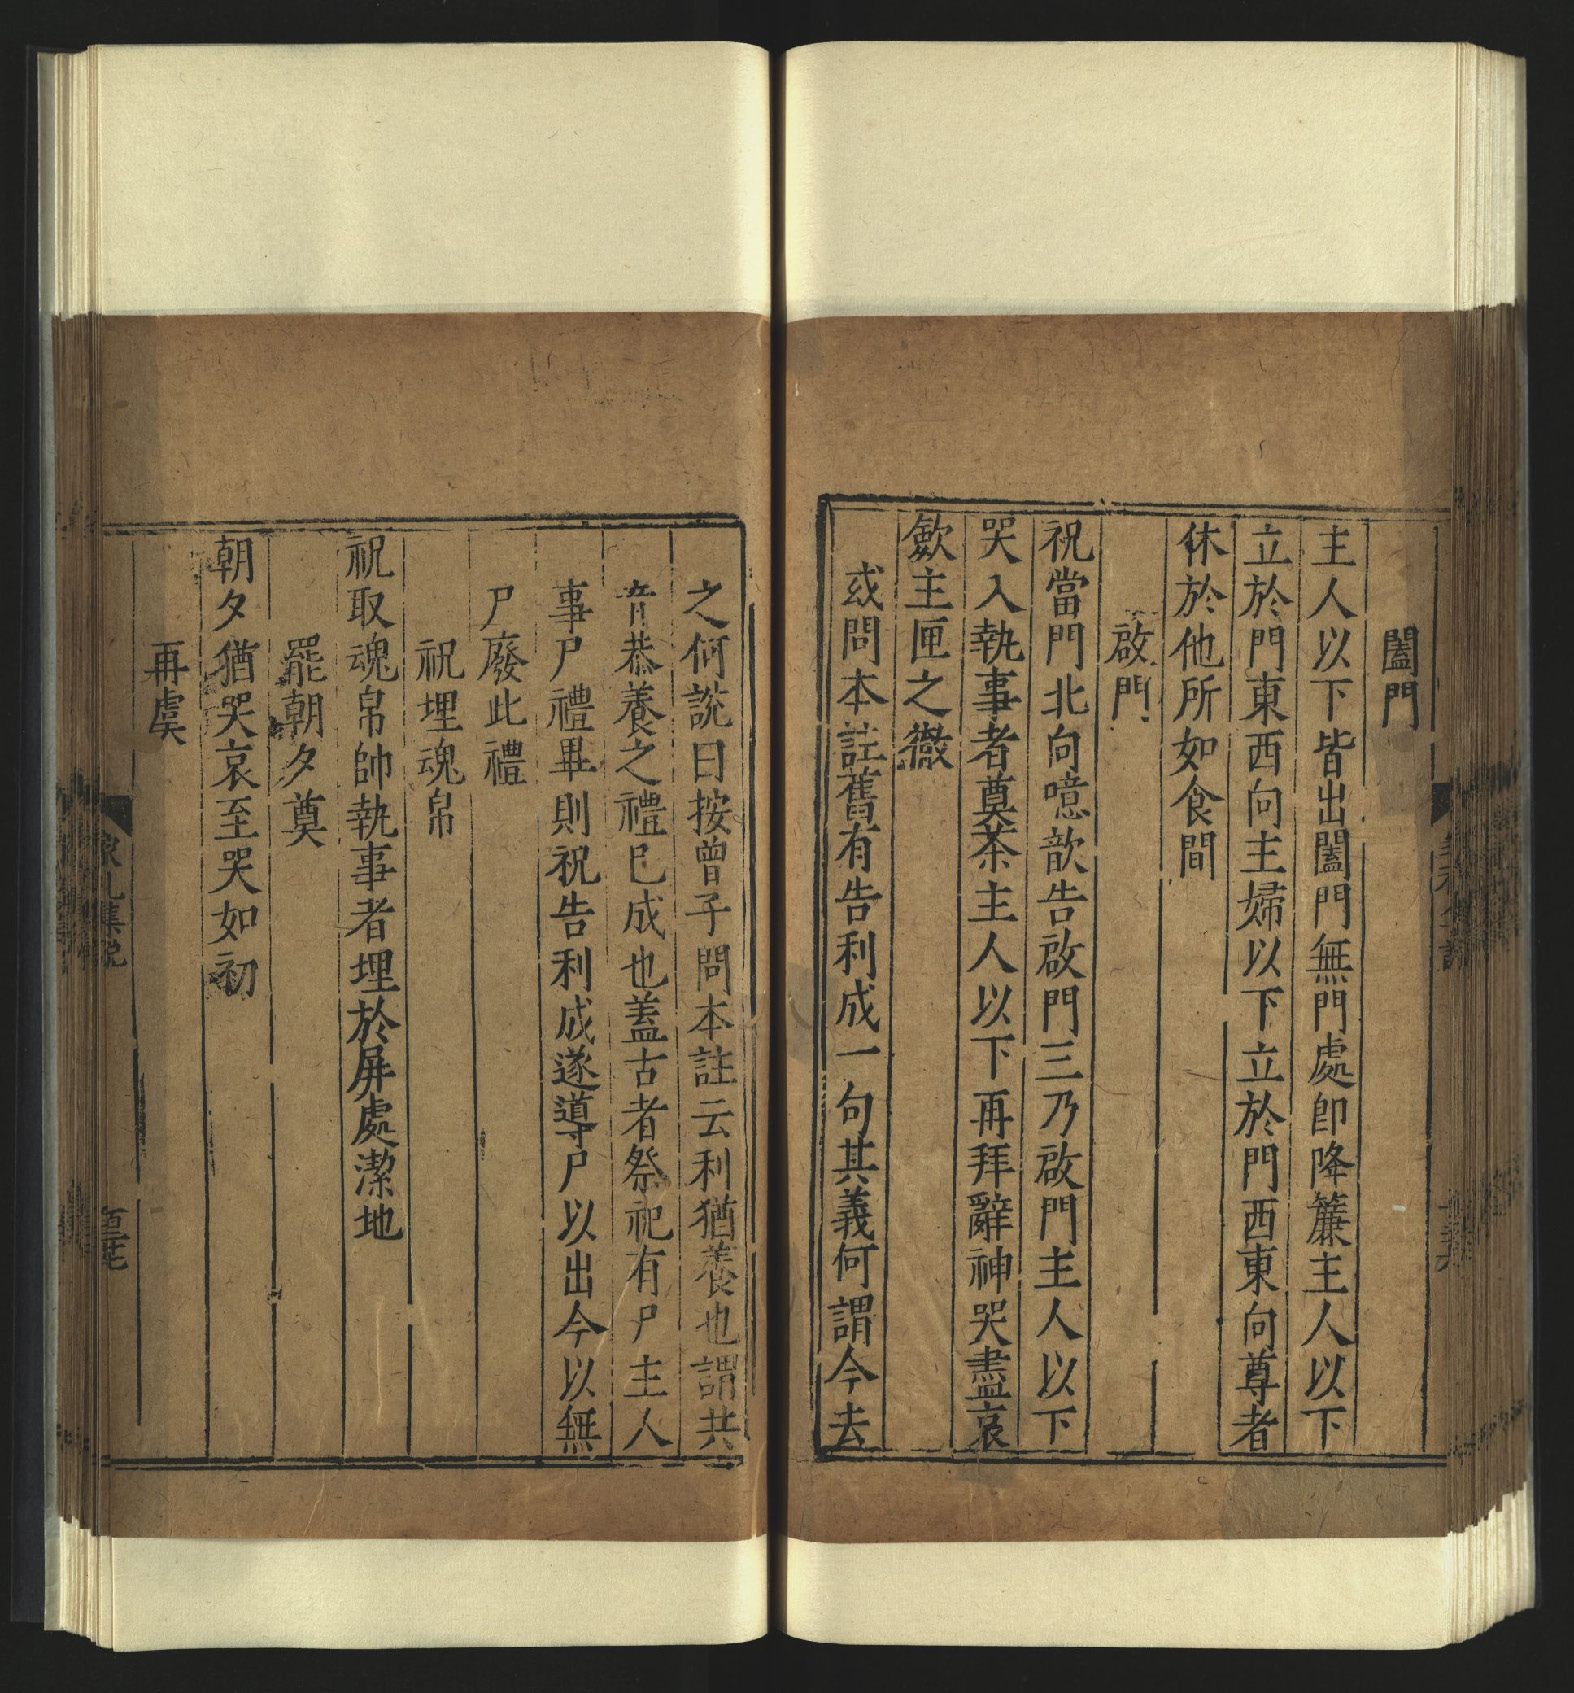 闔門
主人以下皆出闔門無門處卽降簾主人以下
立於門東西向主婦以下立於門西東向尊者
休於他所如食間
啟門
祝當門北向噫歆告啟門三乃啟門主人以下
哭入執事者奠茶主人以下再拜辭神哭盡哀
歛主匣之徹
或問本註舊有告利成一句其義何謂今去
之何說曰按曾子問本註云利猶養也謂共
音恭養之禮已成也蓋古者祭祀有尸主人
事尸禮畢則祝告利成遂導尸以出今以無
尸廢此禮
祝埋魂帛
祝取魂帛帥執事者埋於屏處潔地
罷朝夕奠
朝夕猶哭哀至哭如初
再虞
家礼集說